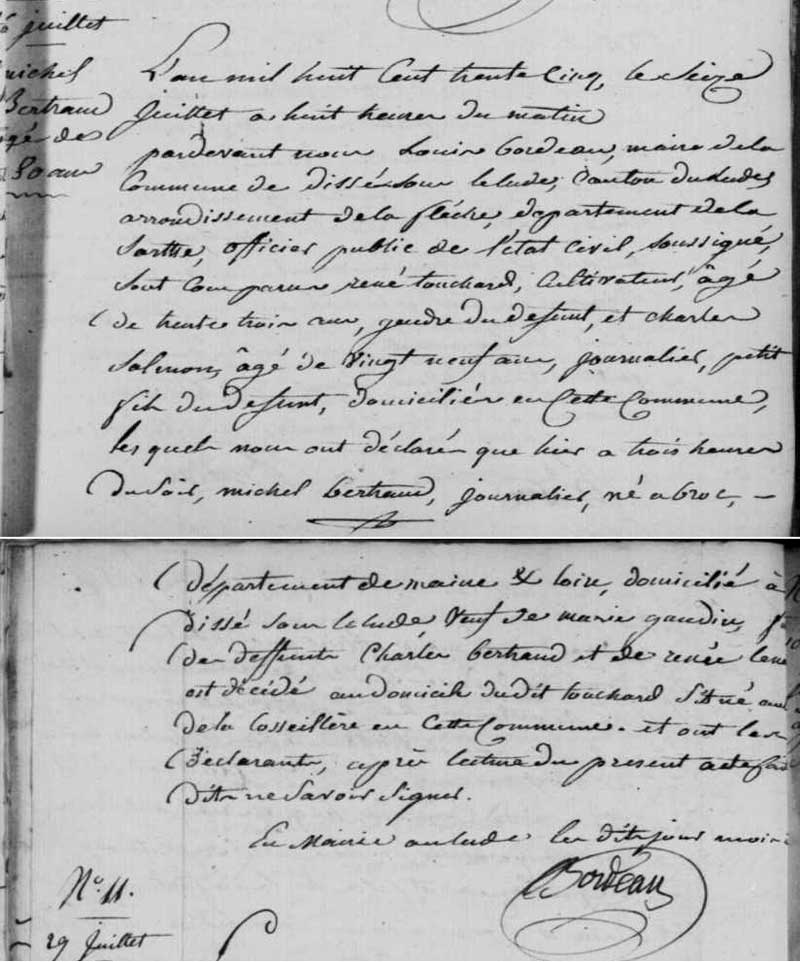 juillet
michel
Bertrand
âgé de
80 ans
L'an mil huit Cent trente Cinq, le Seize
Juillet a huit heures du matin
pardevant nous Louis bordeau, maire de la
Commune de dissé sous le lude, Canton du Lude,
arrondissement de la flêche, département de la
Sarthe, officier public de l'état Civil, Soussigné,
Sont Comparus rené touchard, Cultivateur, âgé
de trente trois ans, gendre du defunt, et charles
Salmon, âgé de Vingt neuf ans, journalier, petit
fils du defunt, domiciliés en Cette Commune,
les quels nous ont déclaré que hier a trois heures
du Soir, michel bertrand, journalier, né a broc, —
département de maine & loire, domicilié à
dissé sous le lude, Veuf de marie gaudin,
de deffunts Charles bertrand et de renée
est décédé au domicile dudit touchard Situé au
de la Cosseillère en Cette Commune. et ont les
Déclarants, après lecture du present acte
dits ne Savoir Signer.
En Mairie au lude les dits jour mois
Bordeau
N.º 11.
29 Juillet